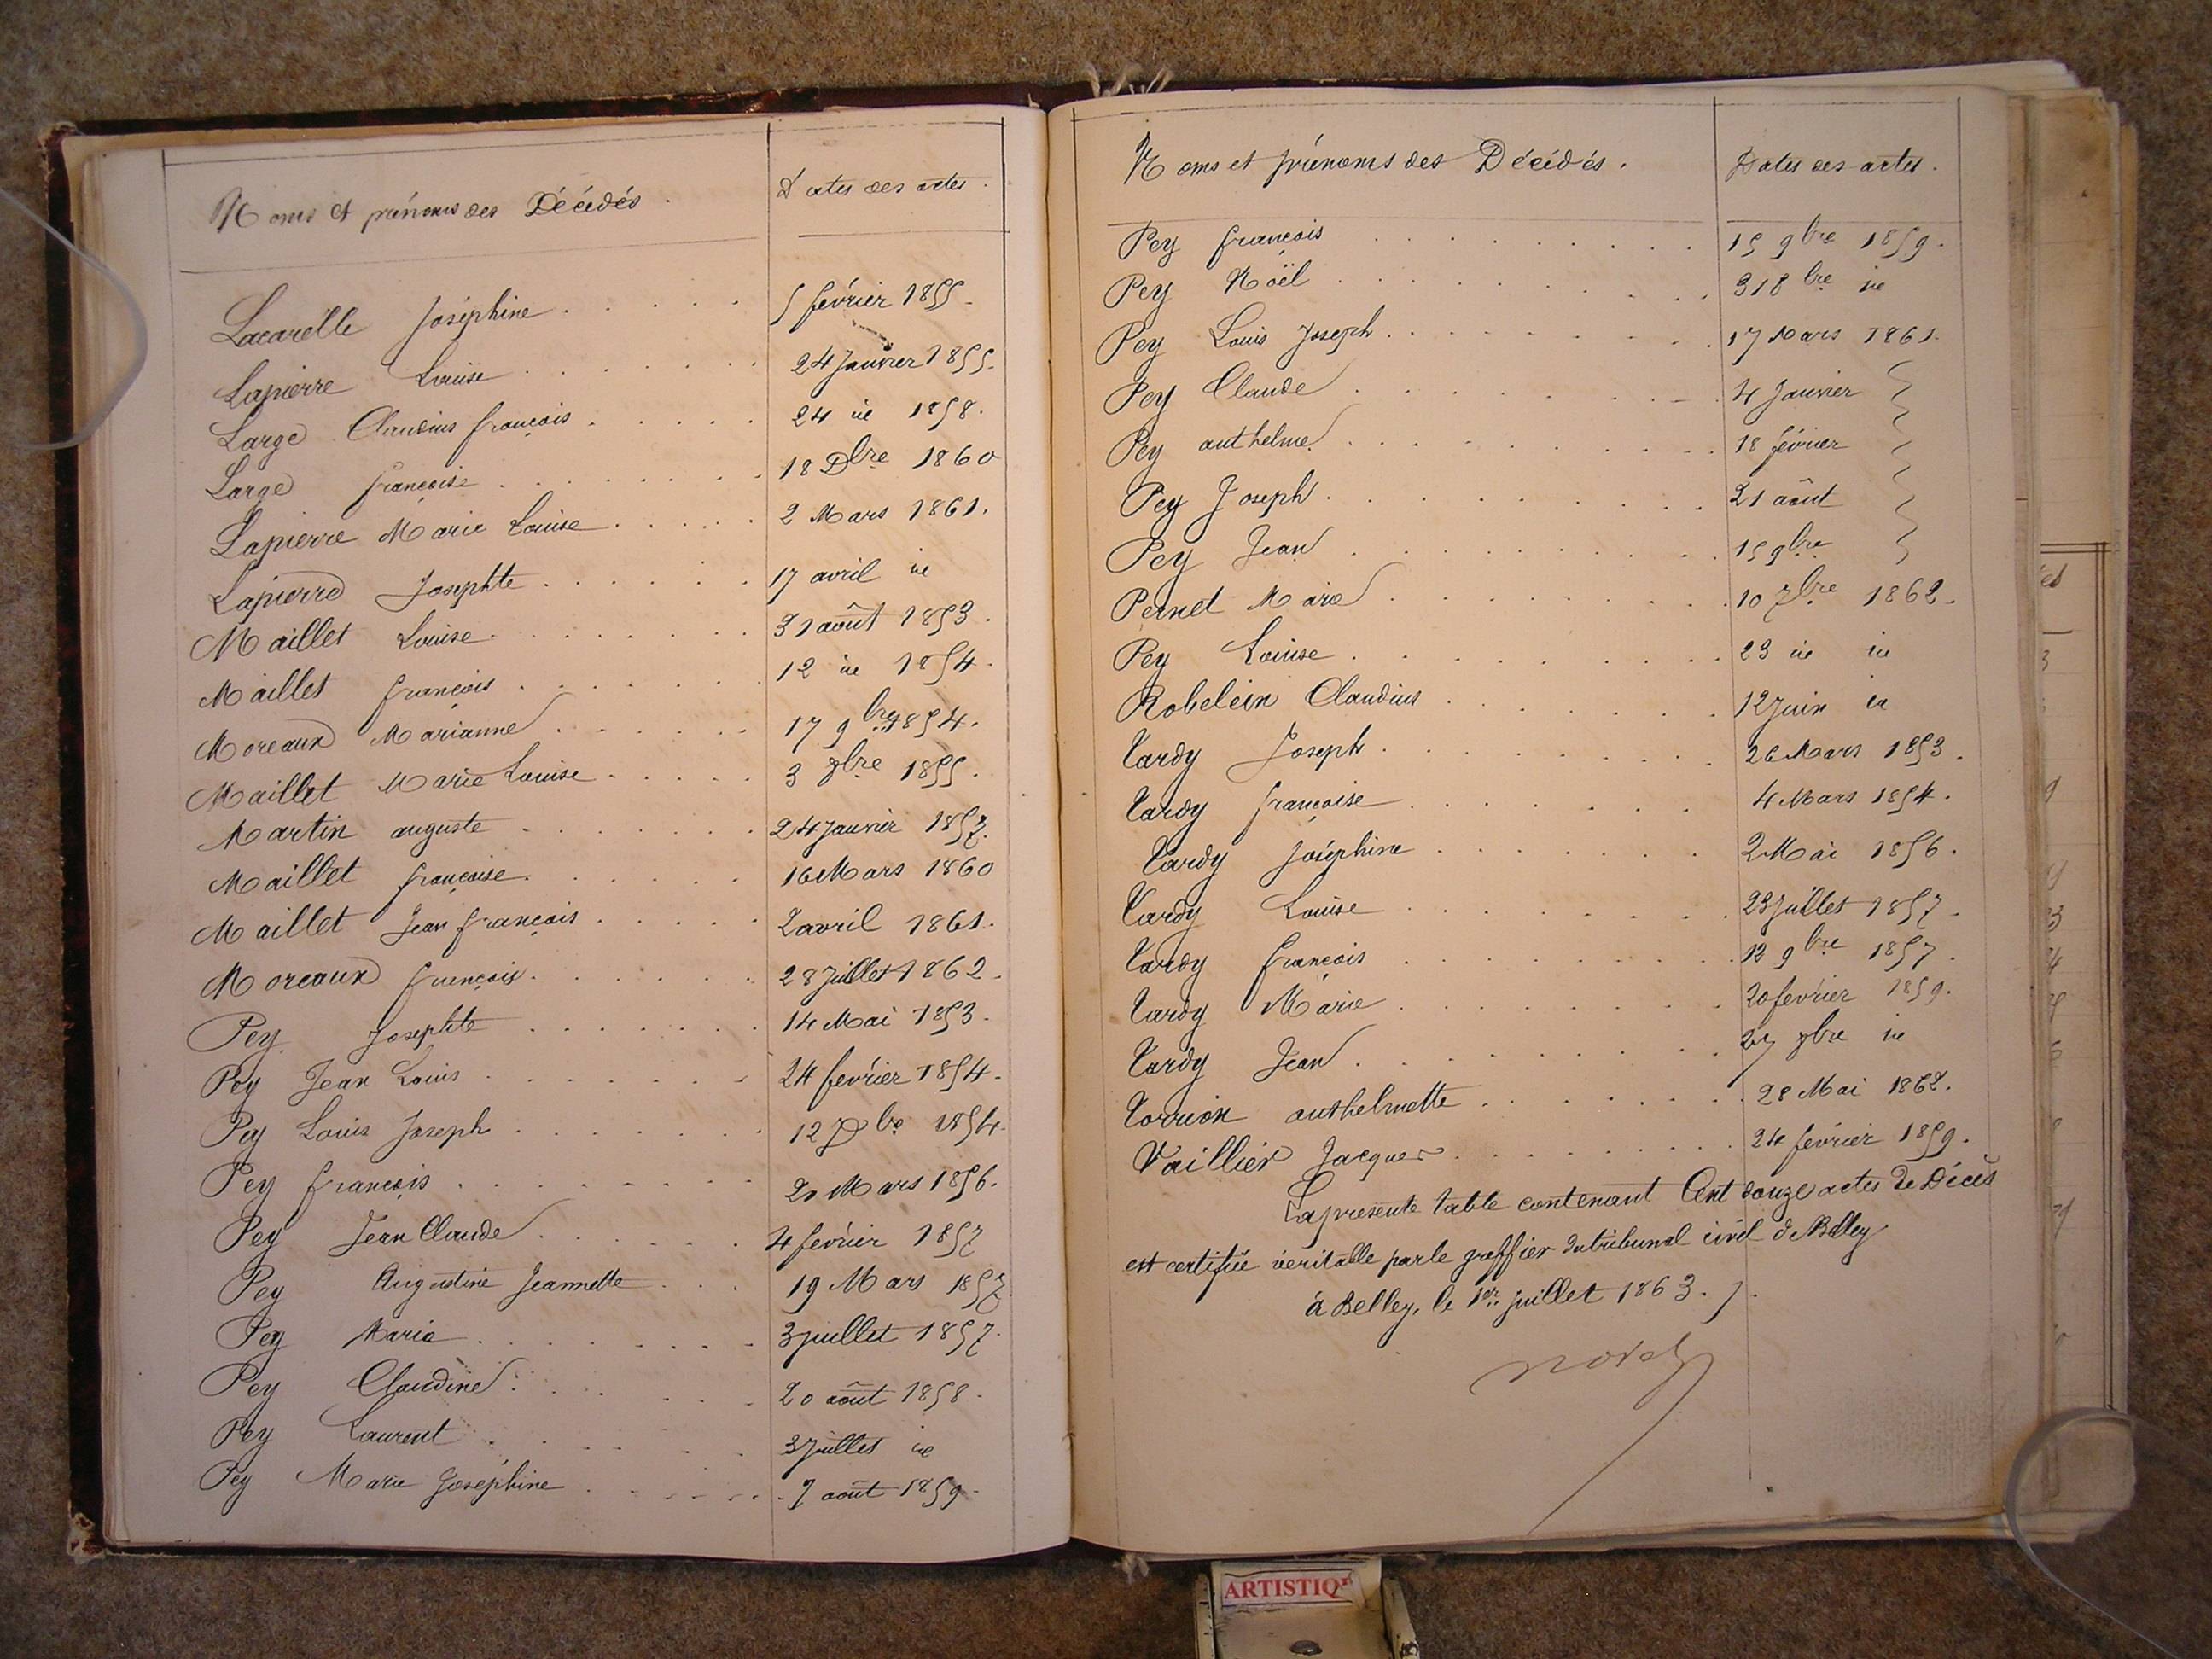 Noms et prénoms des Décédés.
Dates des actes.
Lacarelle Joséphine 5 février 1855.
Lapierre Louise 24 Janvier 1855.
Large Claudius françois 24 id 1858.
Large françoise 18 Dbre 1860
Lapierre Marie Louise 2 Mars 1861.
Lapierre Josephte 17 avril id
Maillet Louise 31 août 1853.
Maillet françois 12 id 1854.
Moreaux Marianne 17 9bre 1854.
Maillet Marie Louise 3 8bre 1855.
Martin auguste 24 Janvier 1857.
Maillet françoise 16 Mars 1860
Maillet Jean françois 2 avril 1861.
Moreaux françois 28 Juillet 1862.
Pey Josephte 14 Mai 1853.
Pey Jean Louis 24 février 1854.
Pey Louis Joseph 12 Dbre 1854.
Pey françois 21 Mars 1856.
Pey Jean Claude 4 février 1857
Pey Augustine Jeannette 19 Mars 1857
Pey Marie 3 juillet 1857.
Pey Claudine 20 août 1858.
Pey Laurent 3 Juillet id
Pey Marie Joséphine 7 août 1859.
Noms et prénoms des Décédés.
Dates des actes.
Pey françois 15 9bre 1859.
Pey Noël 31 8bre id
Pey Louis Joseph 17 Mars 1861.
Pey Claude 4 Janvier
Pey anthelme 18 février
Pey Joseph 21 août
Pey Jean 15 9bre
Pernet Marie 10 7bre 1862.
Pey Louise 23 id id
Robelein Claudius 12 Juin id
Tardy Joseph 26 Mars 1853.
Tardy françoise 4 Mars 1854.
Tardy Joséphine 2 Mai 1856.
Tardy Louise 23 Juillet 1857.
Tardy françois 12 9bre 1857.
Tardy Marie 20 février 1859.
Tardy Jean 27 8bre id
Torrion anthelmette 28 Mai 1862.
Vaillier Jacques 24 février 1859.
La présente table contenant Cent douze actes de Décès
est certifiée véritable par le greffier du tribunal civil de Belley
à Belley, le 1er Juillet 1863.
ARTISTIQ